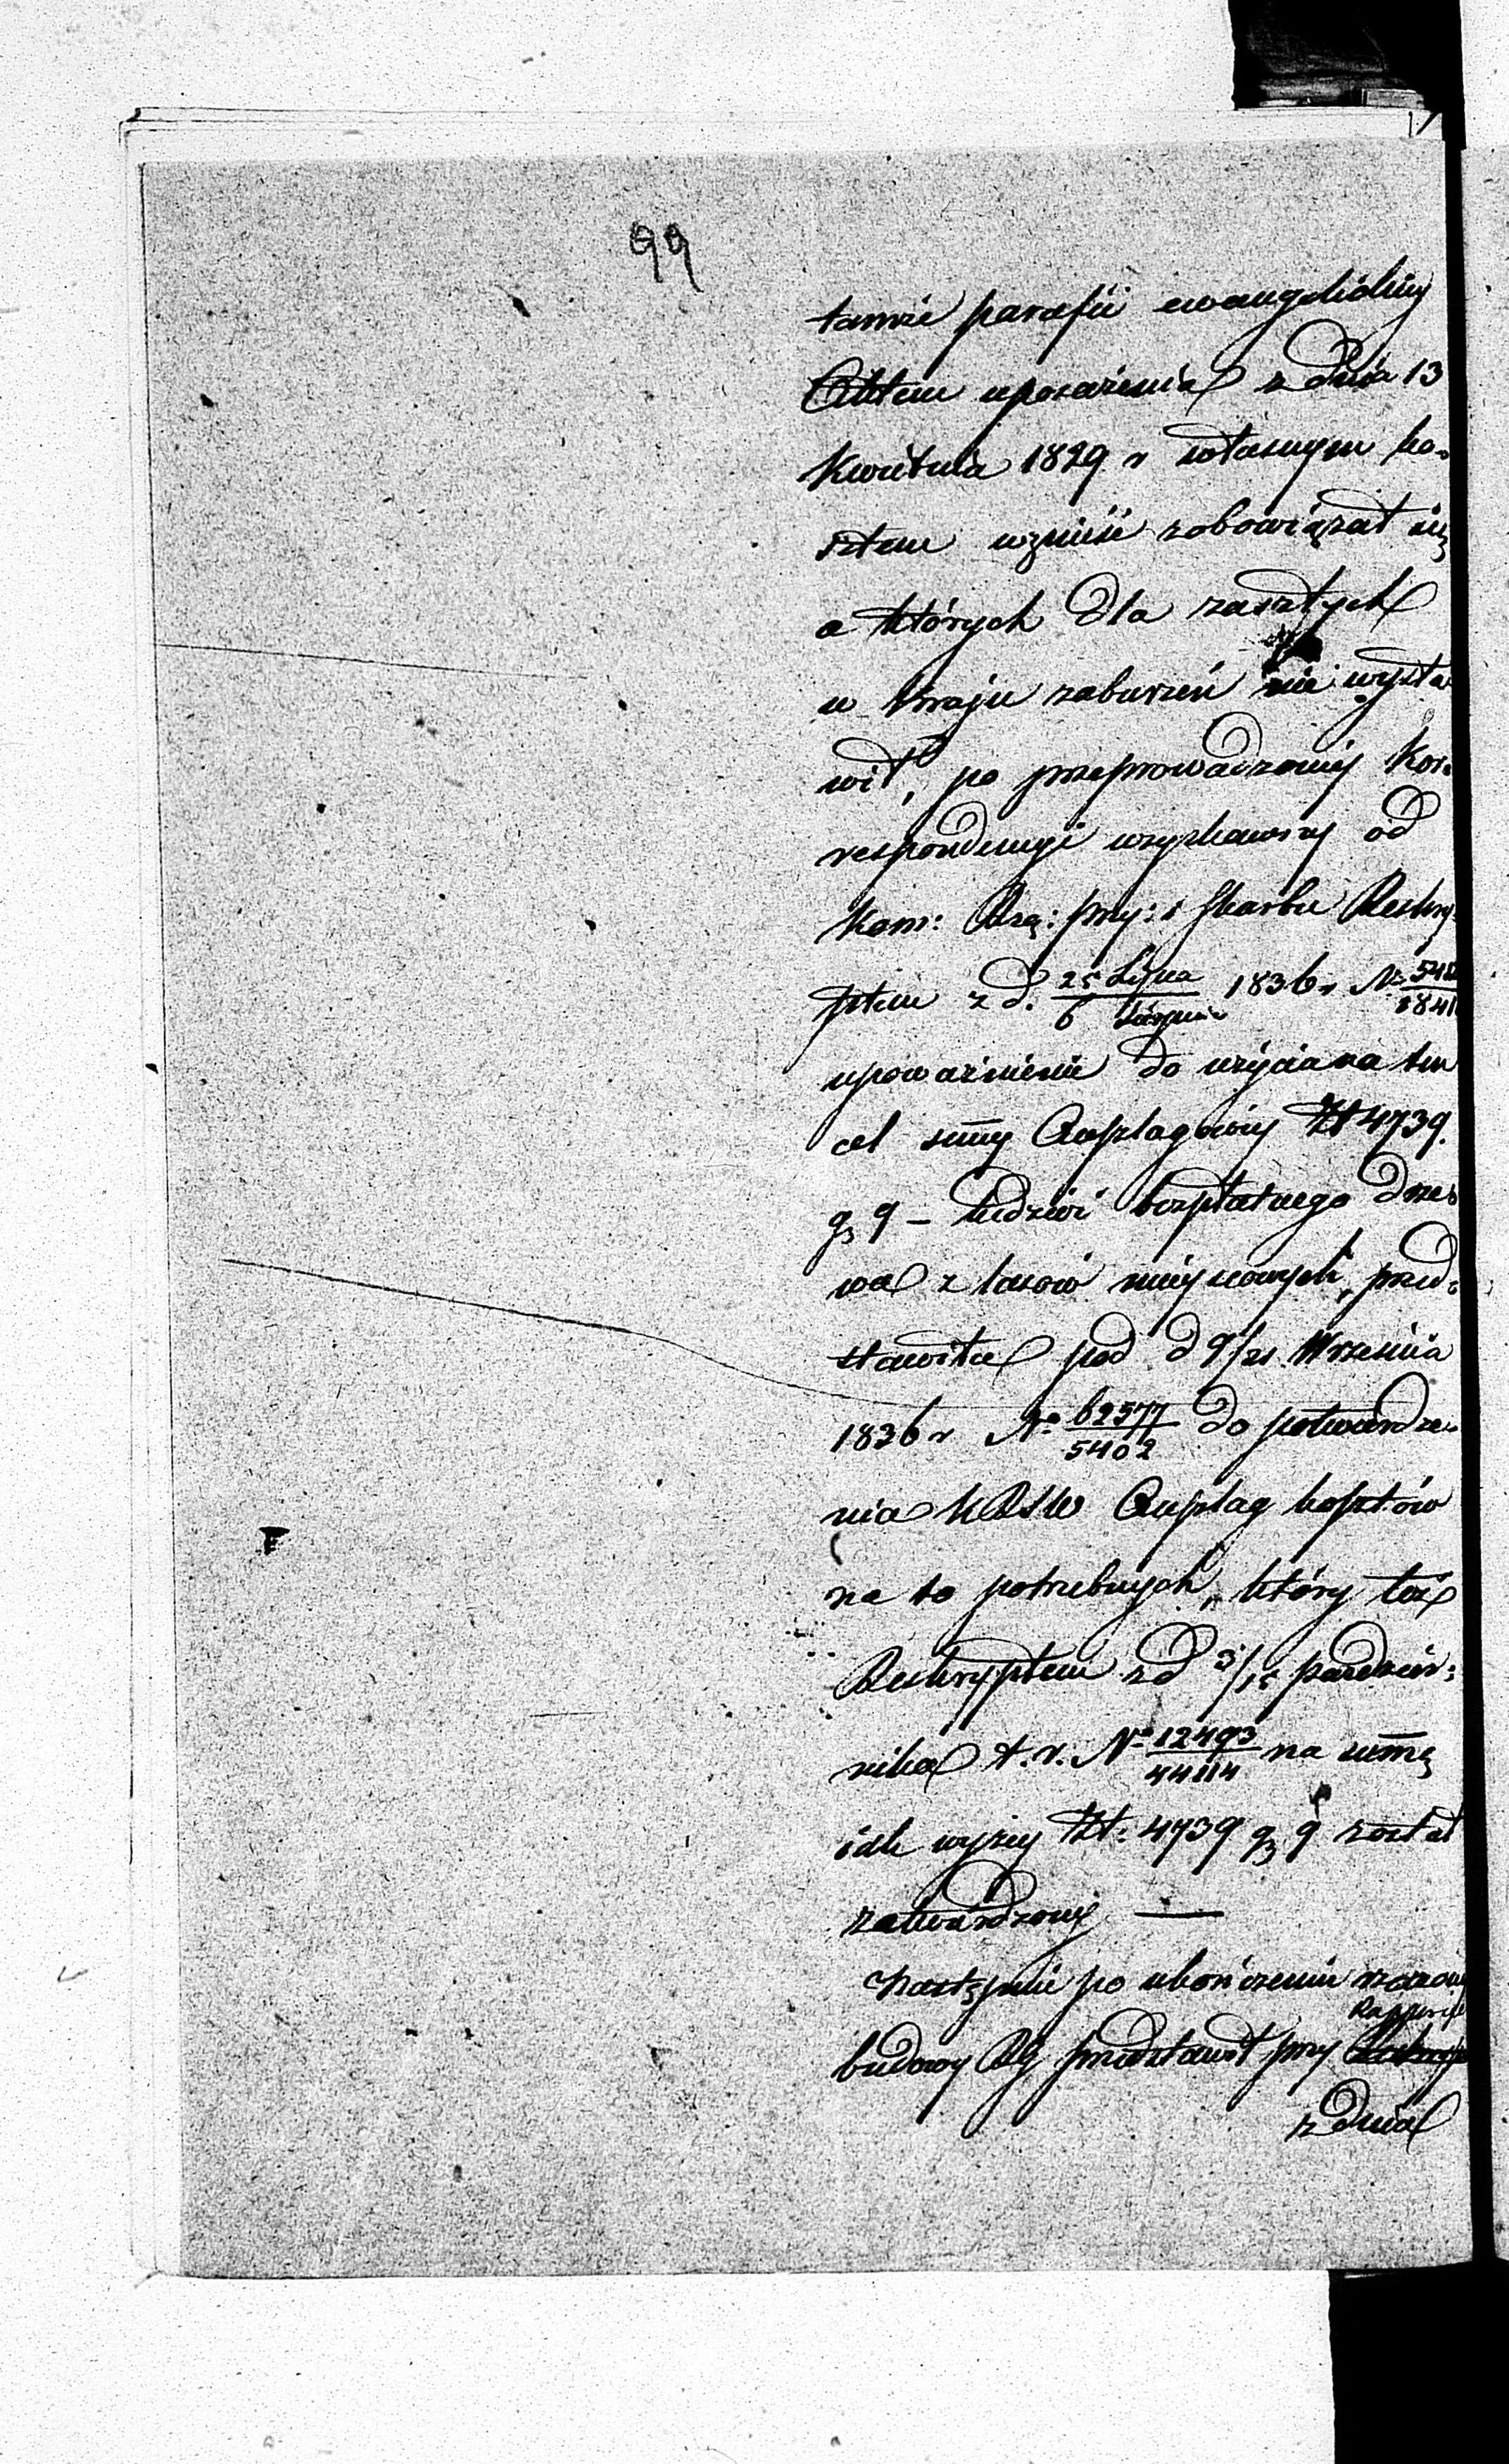 99
tamże parafii ewangelickiej
Aktem uposażenia z dnia 13
Kwietnia 1829 r własnym ko-
sztem wznieść zobowiązał się
a których dla zaszłych
w kraju zaburzeń nie wysta
wił, po przeprowadzonej Kor-
respondencyi uzyskawszy od
Kom: Rzą: Przy: i Skarbu Reskry-
ptem z d. 25 Lipca / 6 Sierpnia 1836 r No
upoważnienie do użycia na ten
cel summy Anszlagowej Zł 4739.
g 9 – tudzież bezpłatnego drze-
wa z lasów miejscowych, przed-
stawiła pod d 9/21 Września
1836 r No 62577/5402 do potwierdze-
nia KRSW Anszlag kosztów
na to potrzebnych, który też
Reskryptem z d 3/15 Paździer-
nika t. r. No 12493/44114 na summę
jak wyżej Zł. 4739 g 9 został
zatwierdzony —
Następnie po ukończeniu rzeczonej
Rapporcie
budowy RG przedstawił przy
z dnia